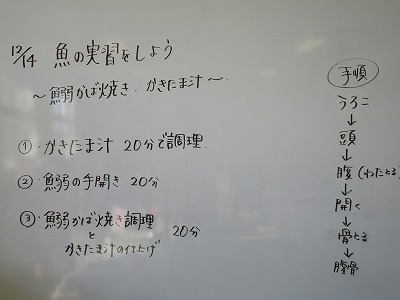 12/14 魚の実習をしよう
~鰯かば焼き、かきたま汁~
① ・かきたま汁 20分で調理
② ・鰯の手開き 20分
③ ・鰯かば焼き調理
と 20分
かきたま汁の仕上げ
手順
うろこ
↓
頭
↓
腹(わたとる)
↓
開く
↓
骨とる
↓
腹骨